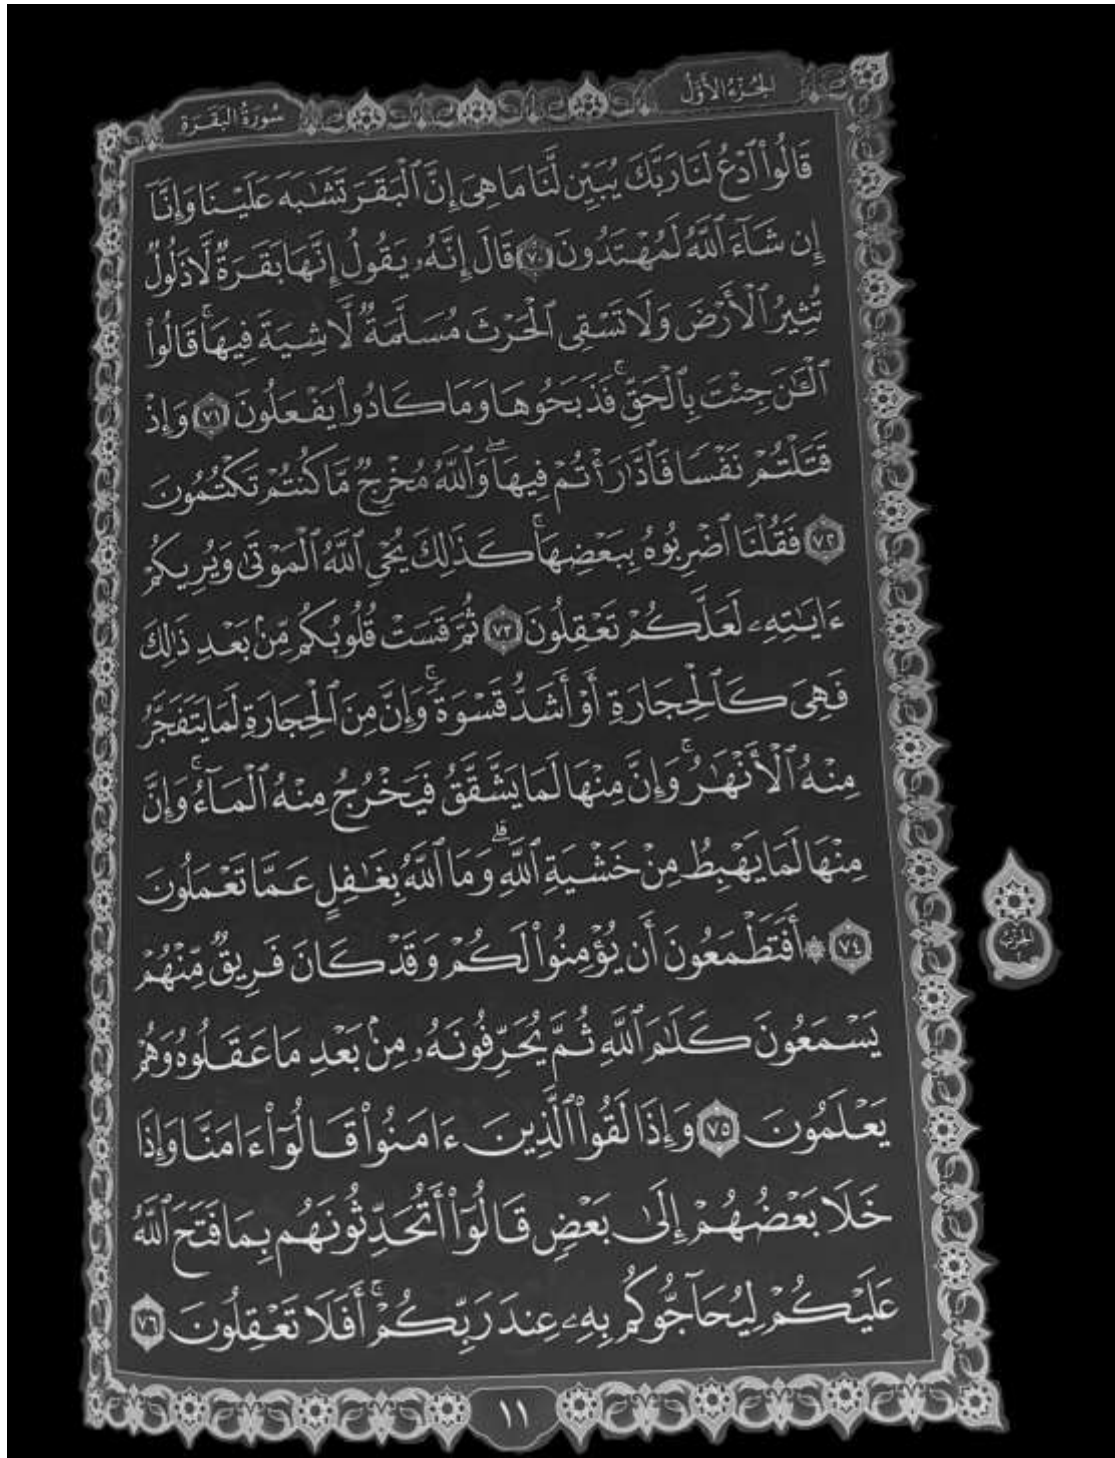 الجُزْءُ الأَوَّلُ
سُورَةُ البَقَرَةِ
قَالُوا۟ ٱدْعُ لَنَا رَبَّكَ يُبَيِّن لَّنَا مَا هِىَ إِنَّ ٱلْبَقَرَ تَشَٰبَهَ عَلَيْنَا وَإِنَّآ
إِن شَآءَ ٱللَّهُ لَمُهْتَدُونَ ٧٠ قَالَ إِنَّهُۥ يَقُولُ إِنَّهَا بَقَرَةٌ لَّا ذَلُولٌ
تُثِيرُ ٱلْأَرْضَ وَلَا تَسْقِى ٱلْحَرْثَ مُسَلَّمَةٌ لَّا شِيَةَ فِيهَا ۚ قَالُوا۟
ٱلْـَٰٔنَ جِئْتَ بِٱلْحَقِّ ۚ فَذَبَحُوهَا وَمَا كَادُوا۟ يَفْعَلُونَ ٧١ وَإِذْ
قَتَلْتُمْ نَفْسًا فَٱدَّٰرَْٰٔتُمْ فِيهَا ۖ وَٱللَّهُ مُخْرِجٌ مَّا كُنتُمْ تَكْتُمُونَ
٧٢ فَقُلْنَا ٱضْرِبُوهُ بِبَعْضِهَا ۚ كَذَٰلِكَ يُحْىِ ٱللَّهُ ٱلْمَوْتَىٰ وَيُرِيكُمْ
ءَايَٰتِهِۦ لَعَلَّكُمْ تَعْقِلُونَ ٧٣ ثُمَّ قَسَتْ قُلُوبُكُم مِّنۢ بَعْدِ ذَٰلِكَ
فَهِىَ كَٱلْحِجَارَةِ أَوْ أَشَدُّ قَسْوَةً ۚ وَإِنَّ مِنَ ٱلْحِجَارَةِ لَمَا يَتَفَجَّرُ
مِنْهُ ٱلْأَنْهَٰرُ ۚ وَإِنَّ مِنْهَا لَمَا يَشَّقَّقُ فَيَخْرُجُ مِنْهُ ٱلْمَآءُ ۚ وَإِنَّ
مِنْهَا لَمَا يَهْبِطُ مِنْ خَشْيَةِ ٱللَّهِ ۗ وَمَا ٱللَّهُ بِغَٰفِلٍ عَمَّا تَعْمَلُونَ
٧٤ ۞ أَفَتَطْمَعُونَ أَن يُؤْمِنُوا۟ لَكُمْ وَقَدْ كَانَ فَرِيقٌ مِّنْهُمْ
يَسْمَعُونَ كَلَٰمَ ٱللَّهِ ثُمَّ يُحَرِّفُونَهُۥ مِنۢ بَعْدِ مَا عَقَلُوهُ وَهُمْ
يَعْلَمُونَ ٧٥ وَإِذَا لَقُوا۟ ٱلَّذِينَ ءَامَنُوا۟ قَالُوٓا۟ ءَامَنَّا وَإِذَا
خَلَا بَعْضُهُمْ إِلَىٰ بَعْضٍ قَالُوٓا۟ أَتُحَدِّثُونَهُم بِمَا فَتَحَ ٱللَّهُ
عَلَيْكُمْ لِيُحَآجُّوكُم بِهِۦ عِندَ رَبِّكُمْ ۚ أَفَلَا تَعْقِلُونَ ٧٦
١١
الحِزْبُ
٢